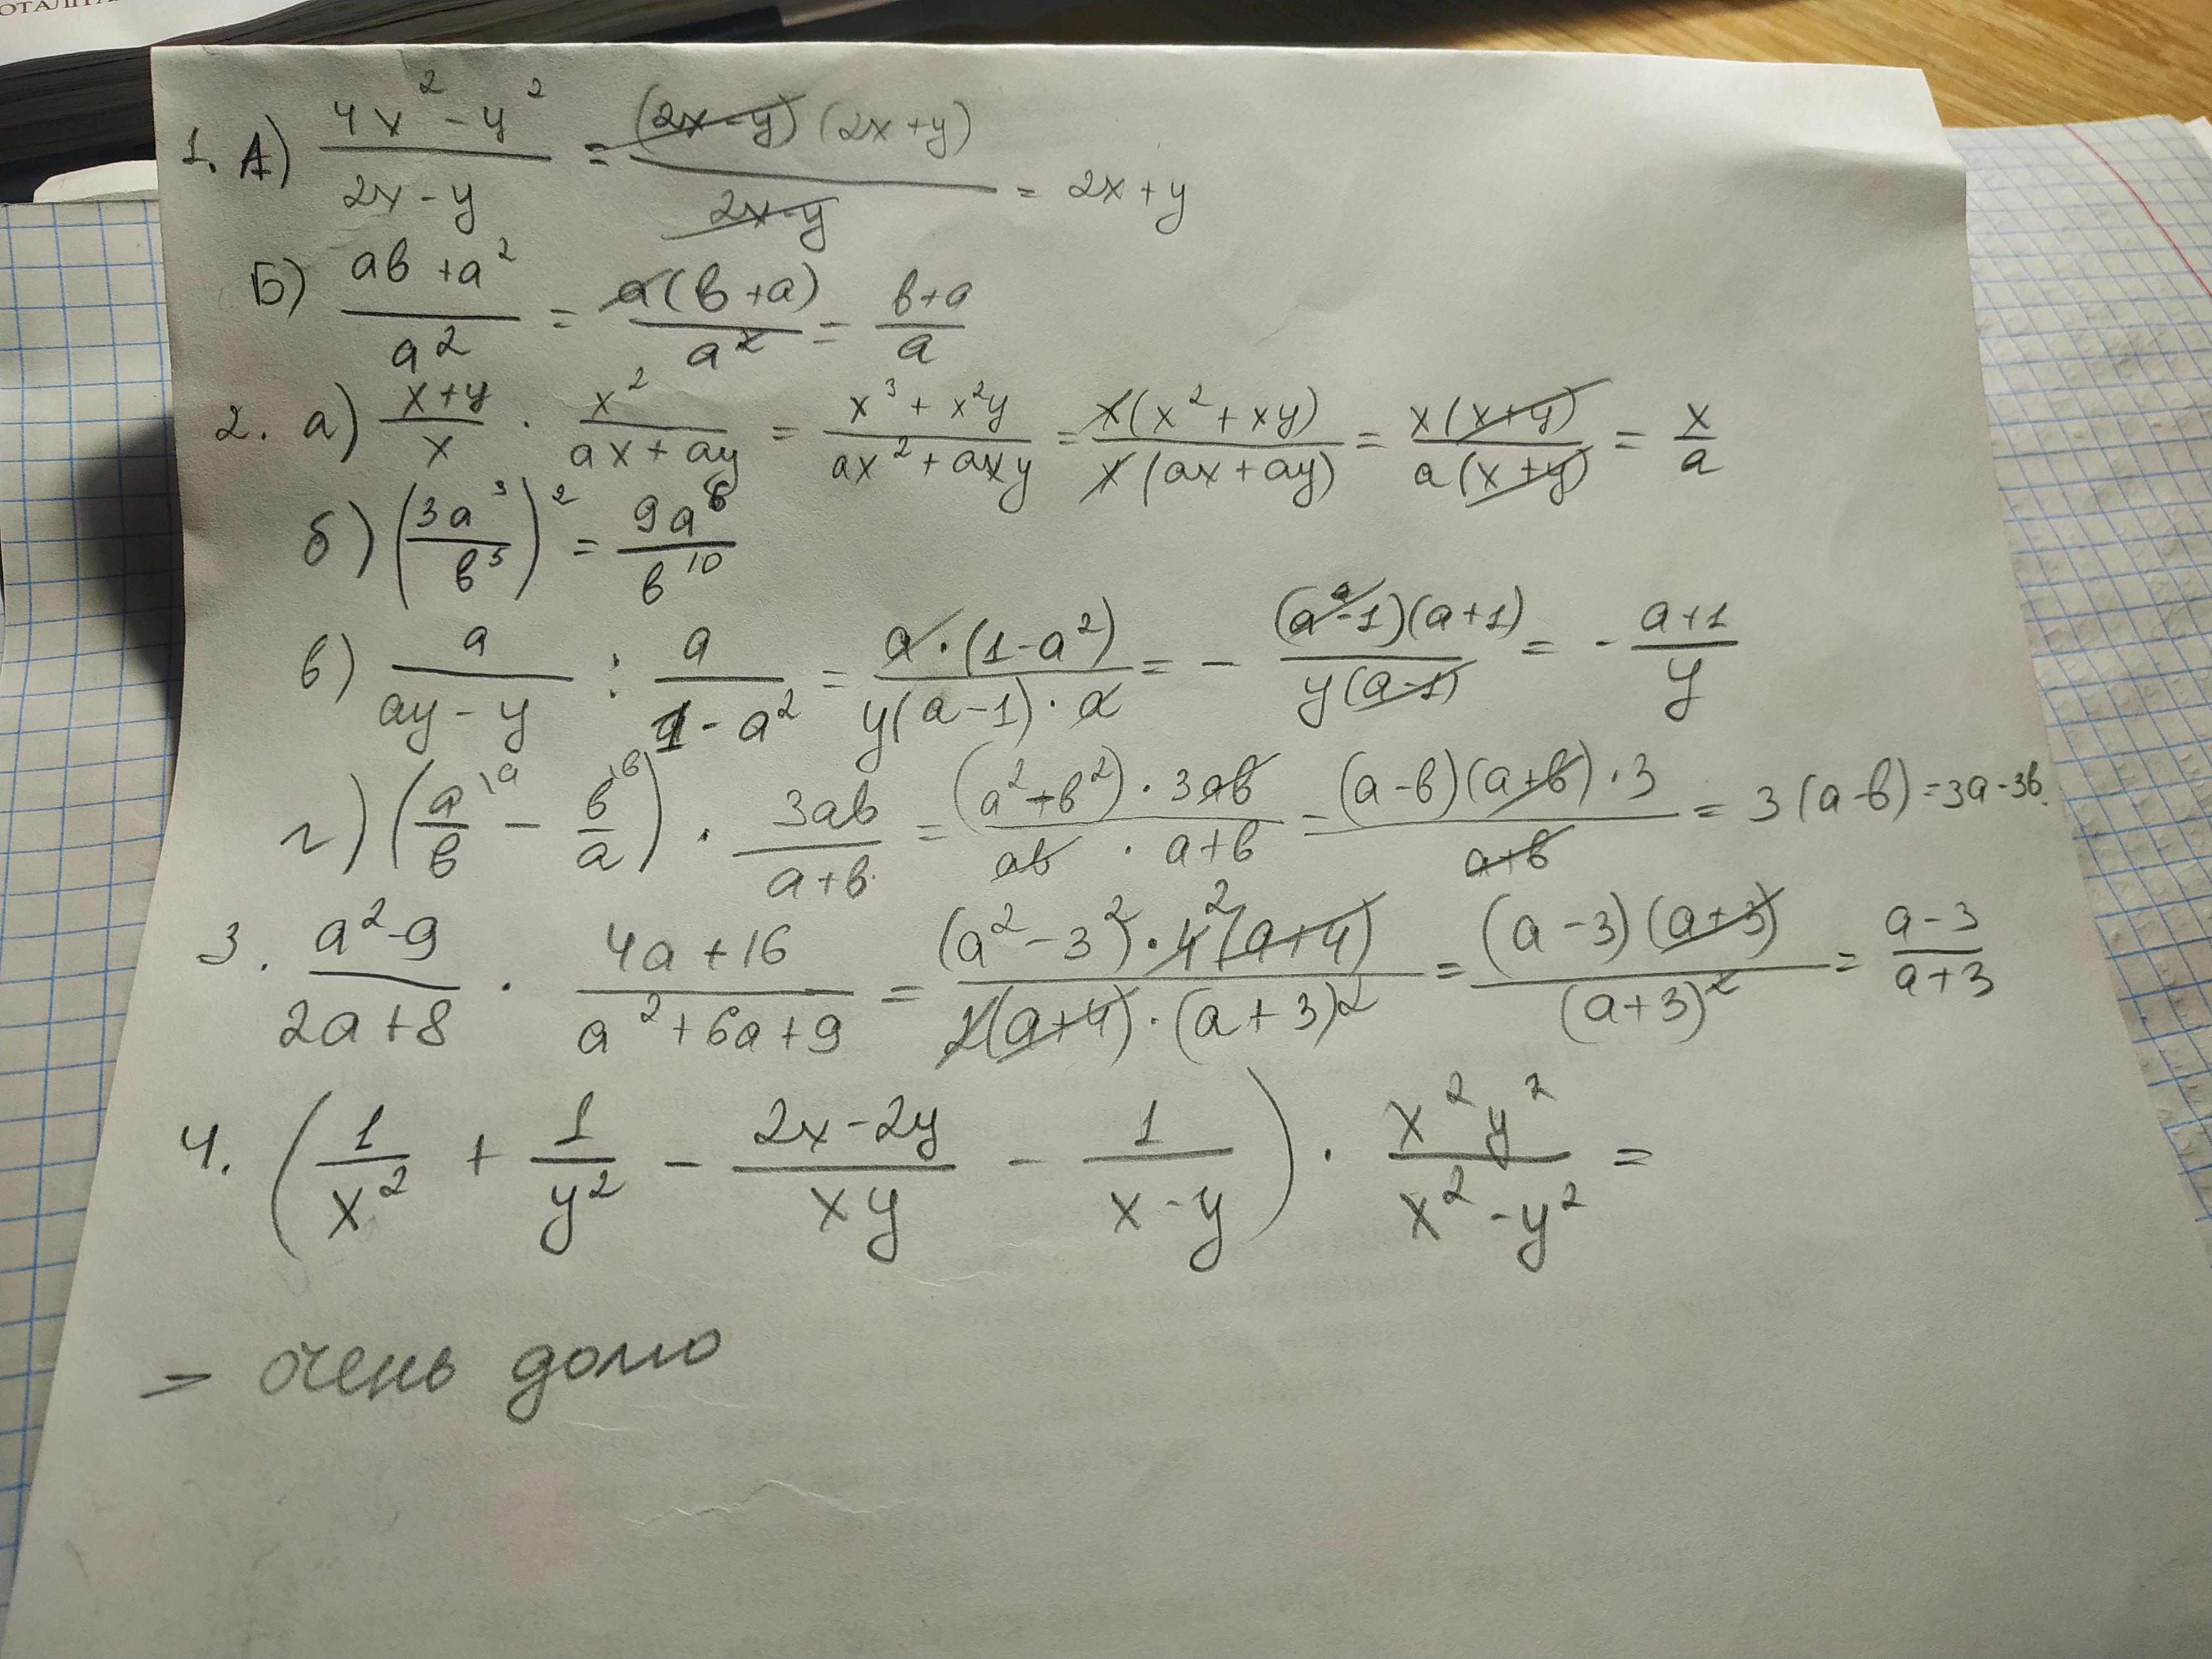 ОТАЛИТА
1. А) (4x² - y²)/(2x - y) = ((2x - y)(2x + y))/(2x - y) = 2x + y
Б) (ab + a²)/a² = a(b + a)/a² = (b + a)/a
2. а) (x + y)/x · x²/(ax + ay) = (x³ + x²y)/(ax² + axy) = x(x² + xy)/x(ax + ay) = x(x + y)/a(x + y) = x/a
б) (3a³/b⁵)² = 9a⁶/b¹⁰
в) a/(ay - y) : a/(1 - a²) = a · (1 - a²)/y(a - 1) · a = - (a² - 1)(a + 1)/y(a - 1) = - (a + 1)/y
г) (a\ᵃ/b - b\ᵇ/a) · 3ab/(a + b) = (a² + b²) · 3ab/ab · a + b = (a - b)(a + b) · 3/(a + b) = 3(a - b) = 3a - 3b.
3. (a² - 9)/(2a + 8) · (4a + 16)/(a² + 6a + 9) = (a² - 3²) · 4²(a + 4)/2(a + 4) · (a + 3)² = (a - 3)(a + 3)/(a + 3)² = (a - 3)/(a + 3)
4. (1/x² + 1/y² - (2x - 2y)/xy - 1/(x - y)) · x²y²/(x² - y²) =
= очень долго